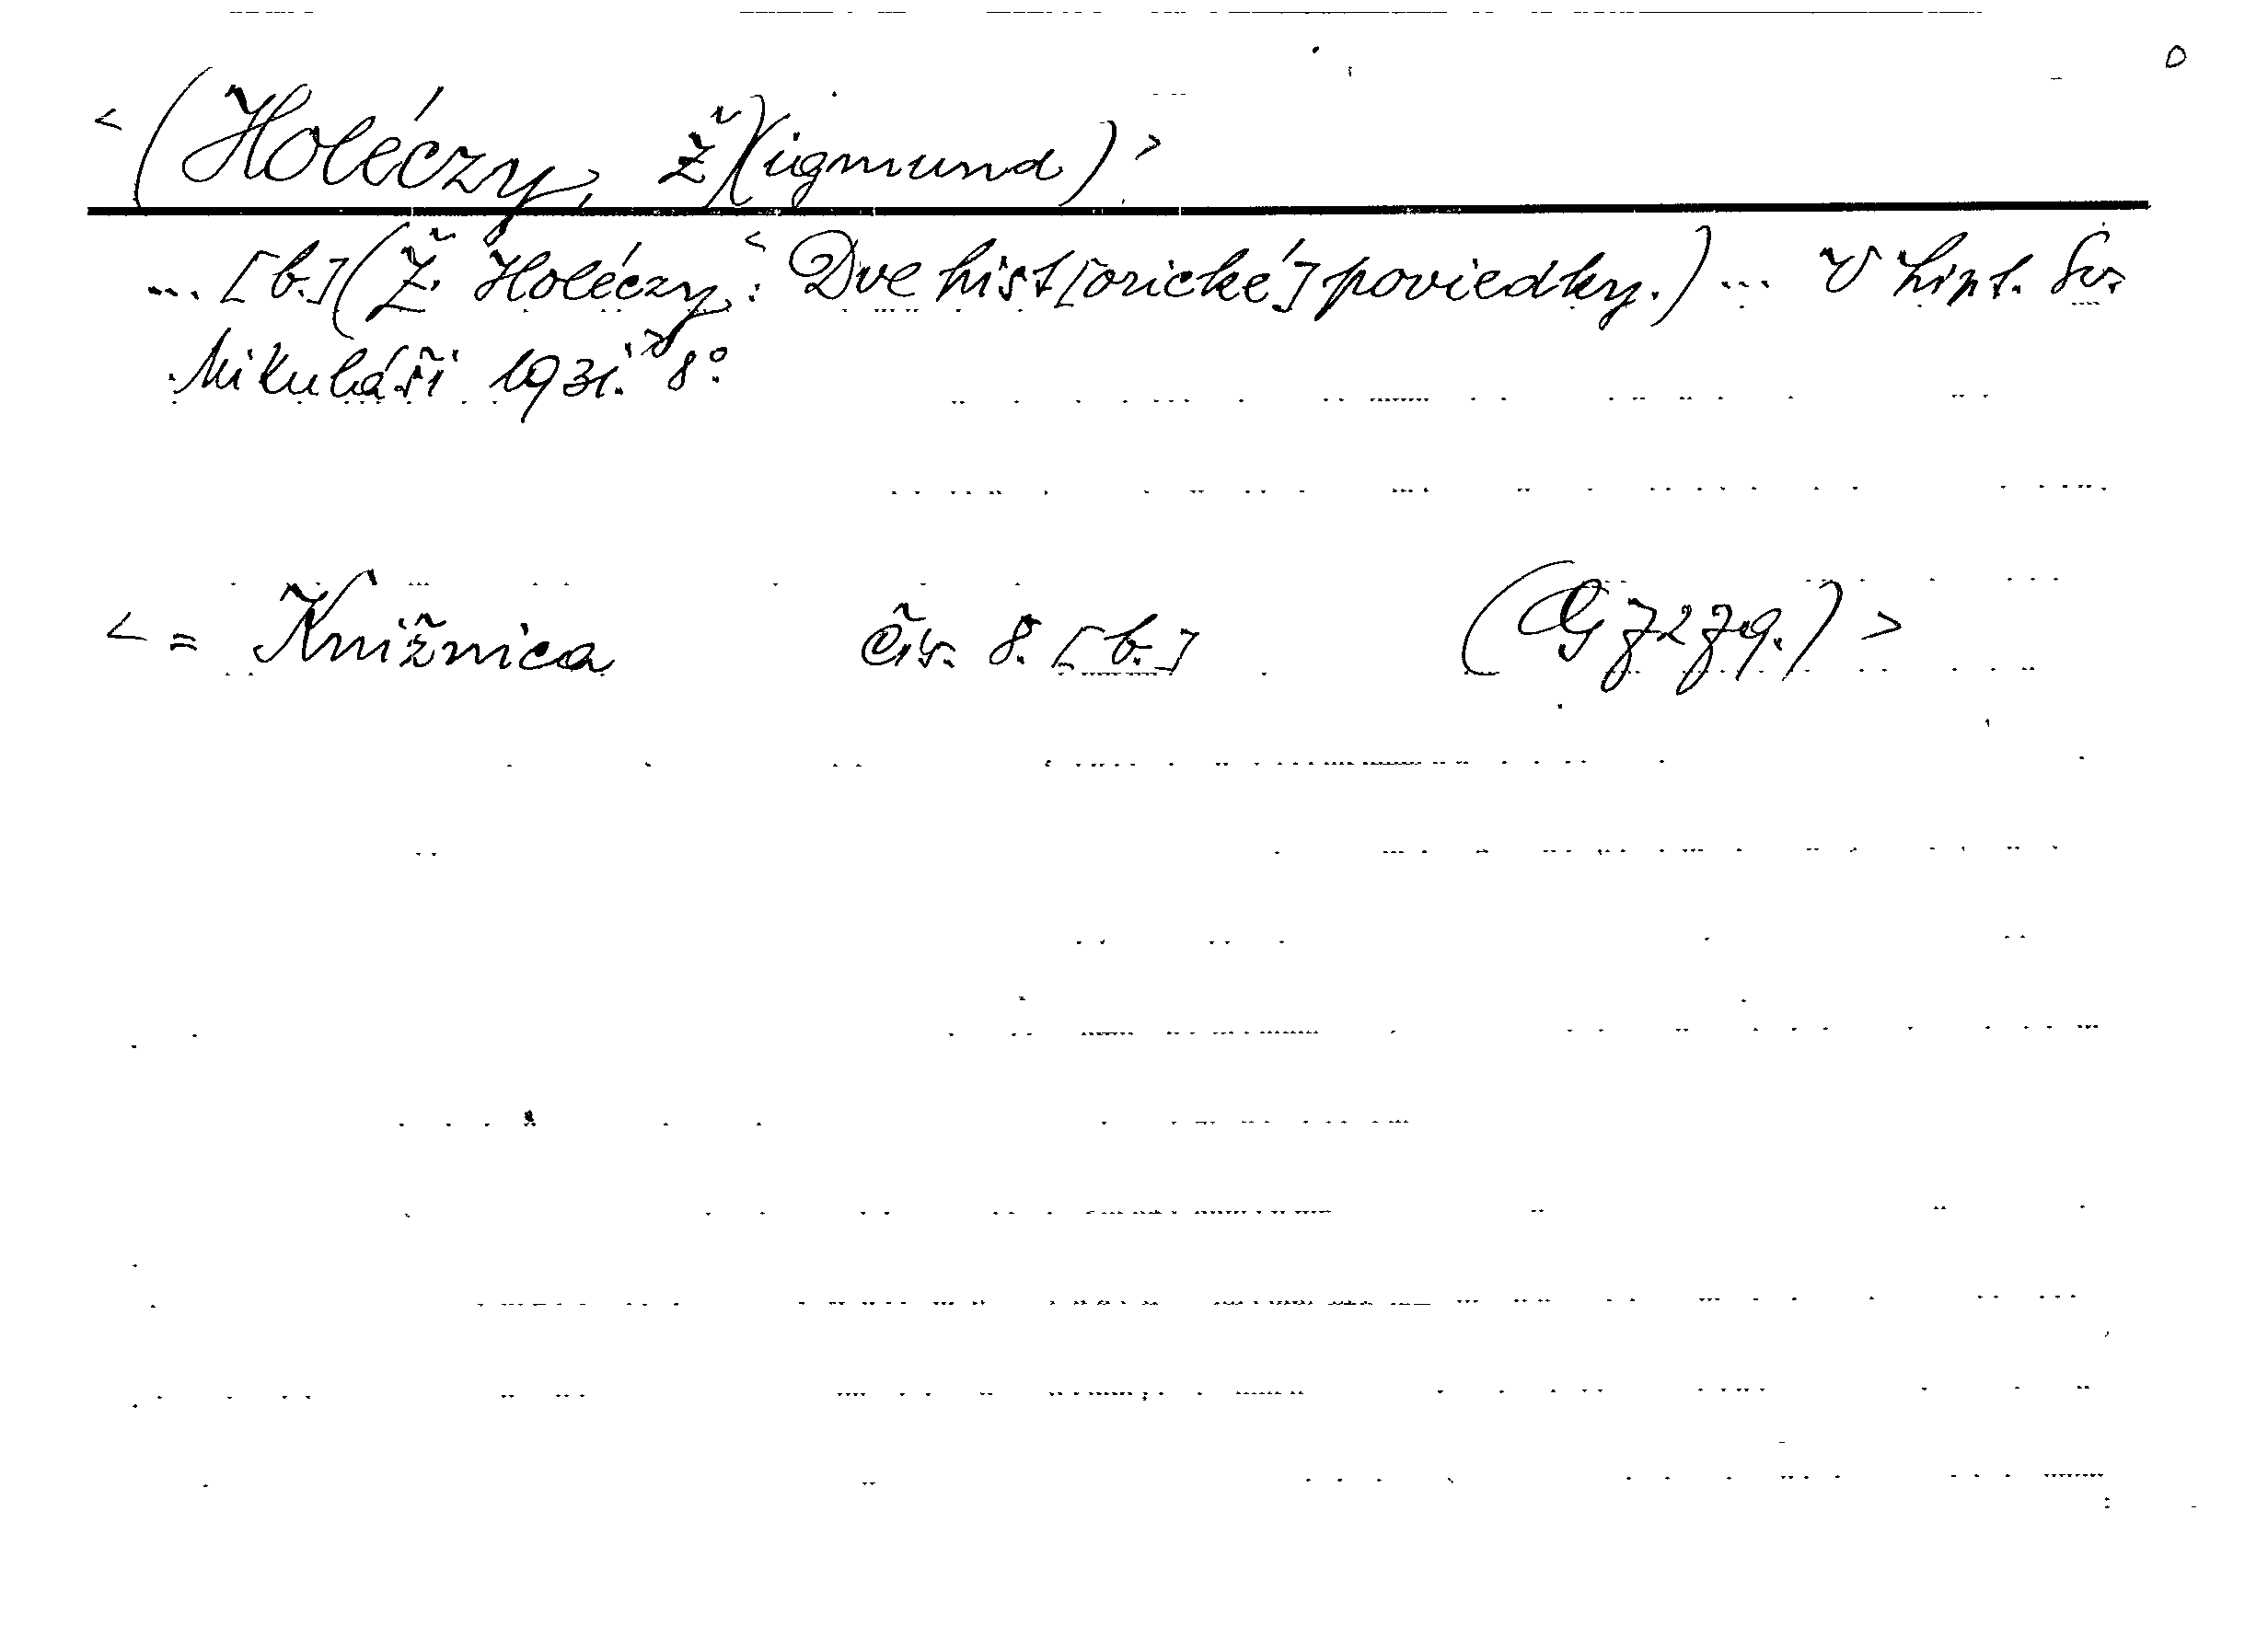 <(Holéczy, Ž)(igmund)>
... [b.] (Ž. Holéczy<: Dve hist[orické] poviedky.) ... V Lipt. Sv.
Mikuláši 1931.> 8°.
<= Knižnica čís. 8. [b.] (G 7279.)>